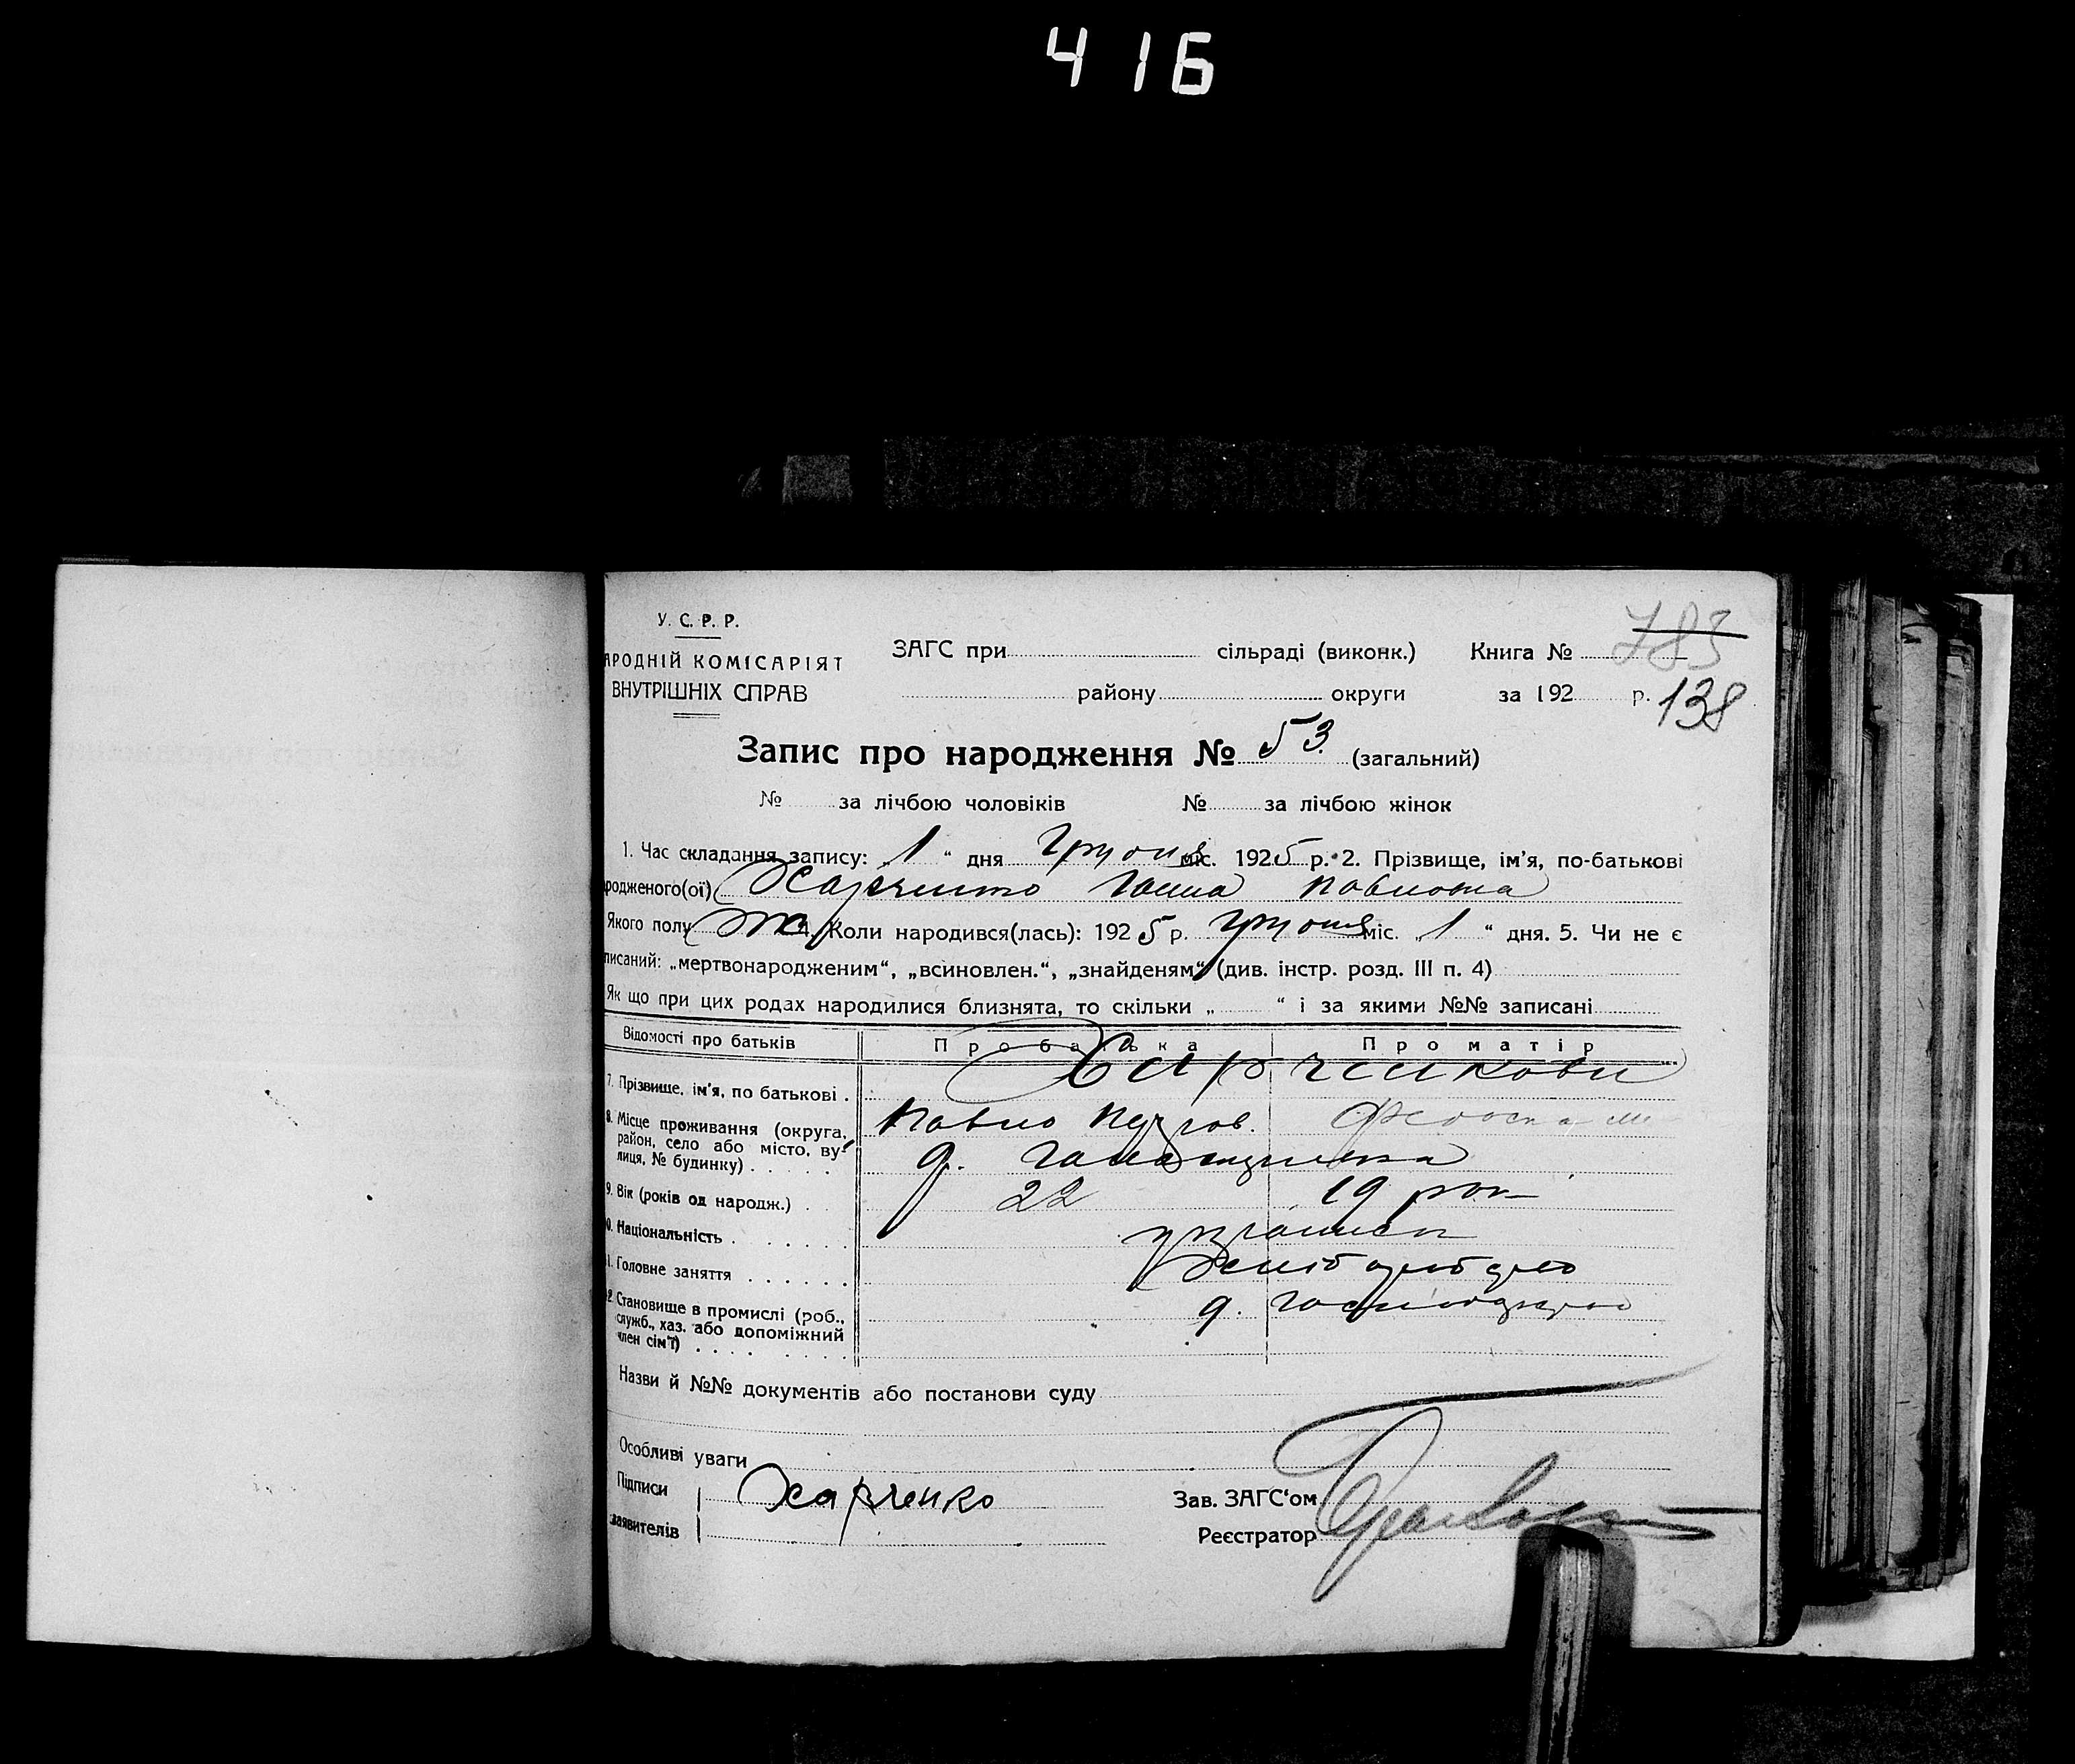 416
У. С. Р. Р.
АРОДНІЙ КОМІСАРІЯТ
ВНУТРІШНІХ СПРАВ
ЗАГС при сільраді (виконк.) Книга № 783
району округи за 192 р. 138
Запис про народження № 53 (загальний)
№ за лічбою чоловіків № за лічбою жінок
1. Час складання запису: „ 1 “ дня Грудня міс. 1925 р. 2. Прізвище, ім'я, по-батькові
родженого(ої) Харченко Ганна Павловна
Якого полу ж 4. Коли народився(лась): 1925 р. грудня міс. „ 1 “ дня. 5. Чи не є
писаний: „мертвонародженим“, „всиновлен.“, „знайденям“ (див. інстр. розд. III п. 4)
Як що при цих родах народилися близнята, то скільки „ “ і за якими №№ записані
Відомості про батьків Про батька Про матір
7. Прізвище, ім'я, по батькові . Харченкови
Павло
8. Місце проживання (округа, район, село або місто, вулиця, № будинку) . . . . .
9. Вік (років од народж.) . . 22 19 рок
0. Національність . . . . . .
1. Головне заняття . . . . . .
2. Становище в промислі (роб., служб., хаз. або допоміжний член сім'ї) . . . . . . . .
Назви й №№ документів або постанови суду
Особливі уваги
Підписи
заявителів
Харченко
Зав. ЗАГС'ом
Реєстратор